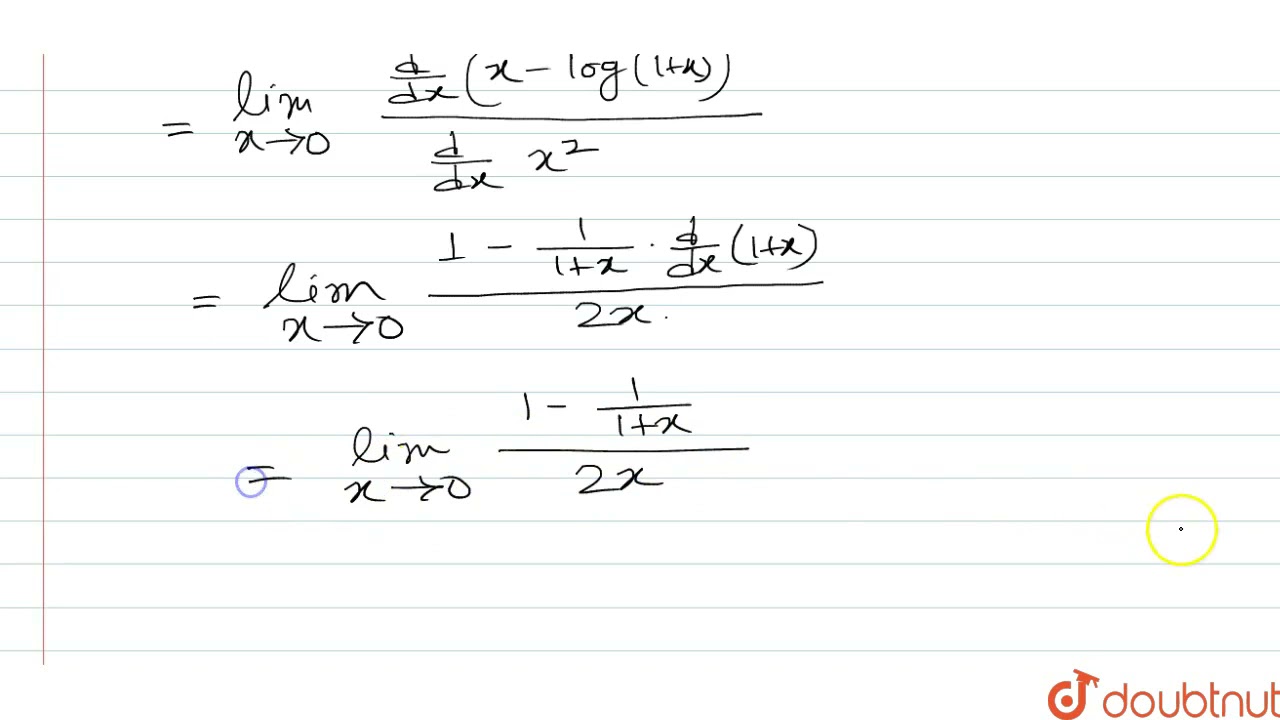 = lim x→0 d/dx (x - log(1+x)) / d/dx x²
= lim x→0 1 - 1/1+x · d/dx (1+x) / 2x.
= lim x→0 1 - 1/1+x / 2x
doubtnut